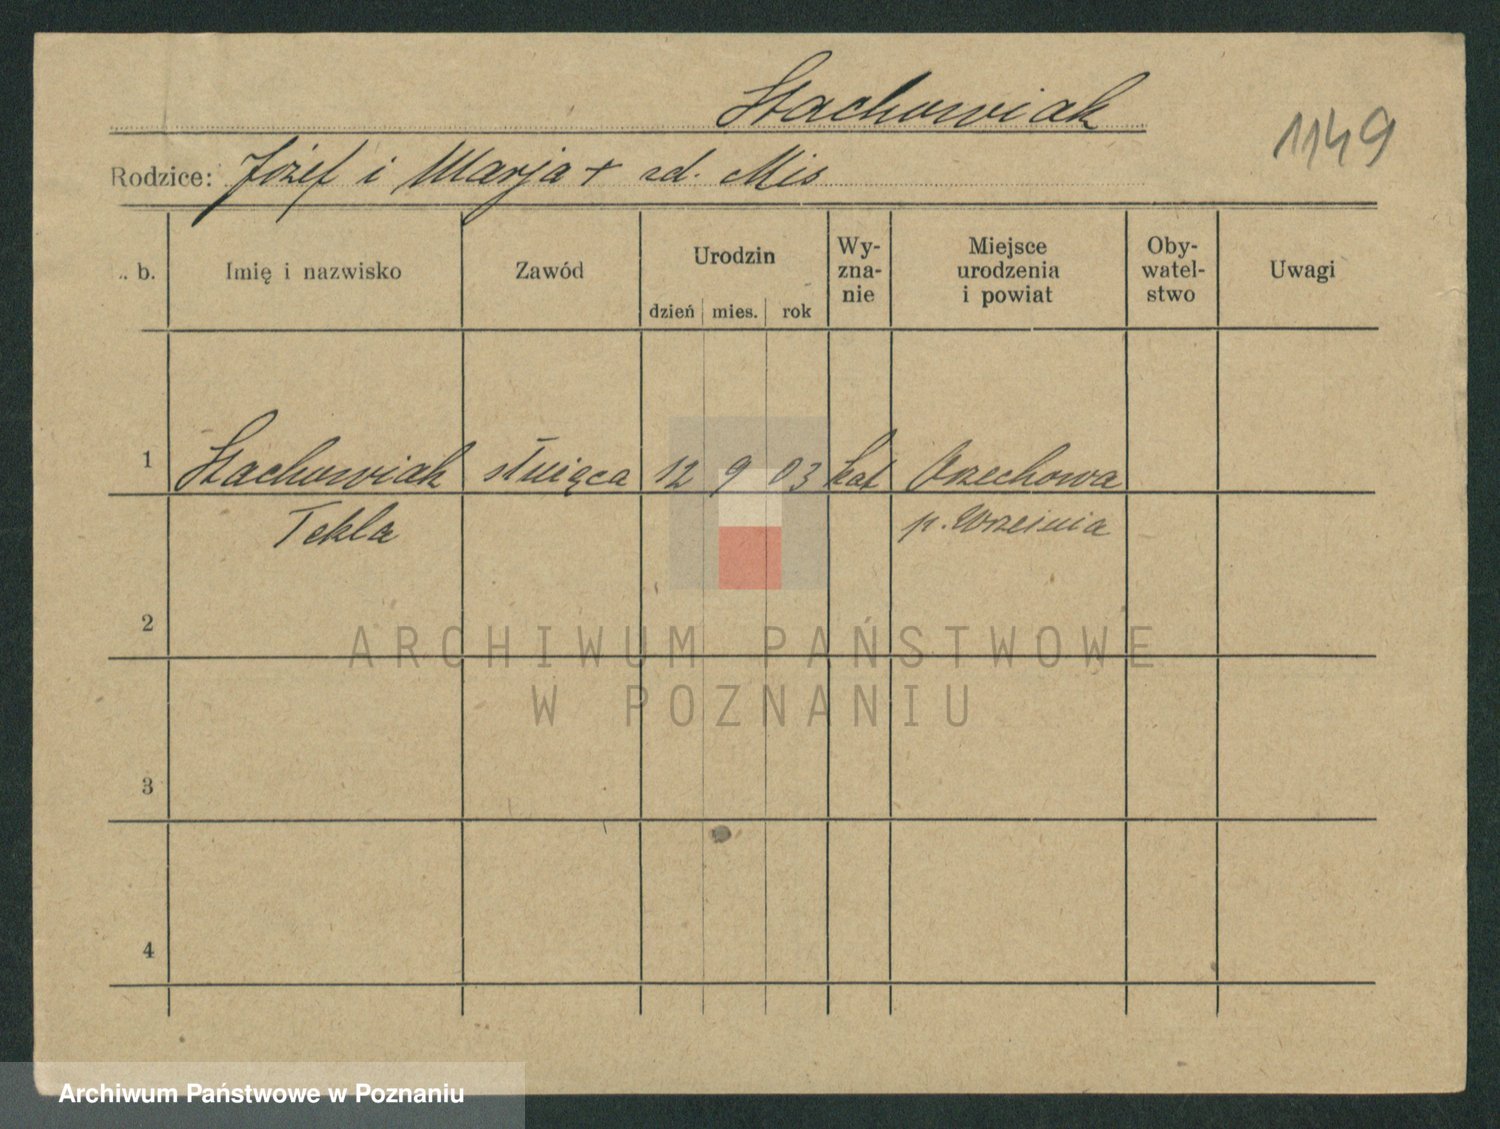 Stachowiak
1149
Rodzice: Józef i Marja + zd. Mis
. b. Imię i nazwisko Zawód Urodzin dzień mies. rok Wy-zna-nie Miejsce urodzenia i powiat Oby-watel-stwo Uwagi
1 Stachowiak służąca 12 9 03 kat Orzechowa
Tekla p. Września
2
ARCHIWUM PAŃSTWOWE
W POZNANIU
3
4
Archiwum Państwowe w Poznaniu